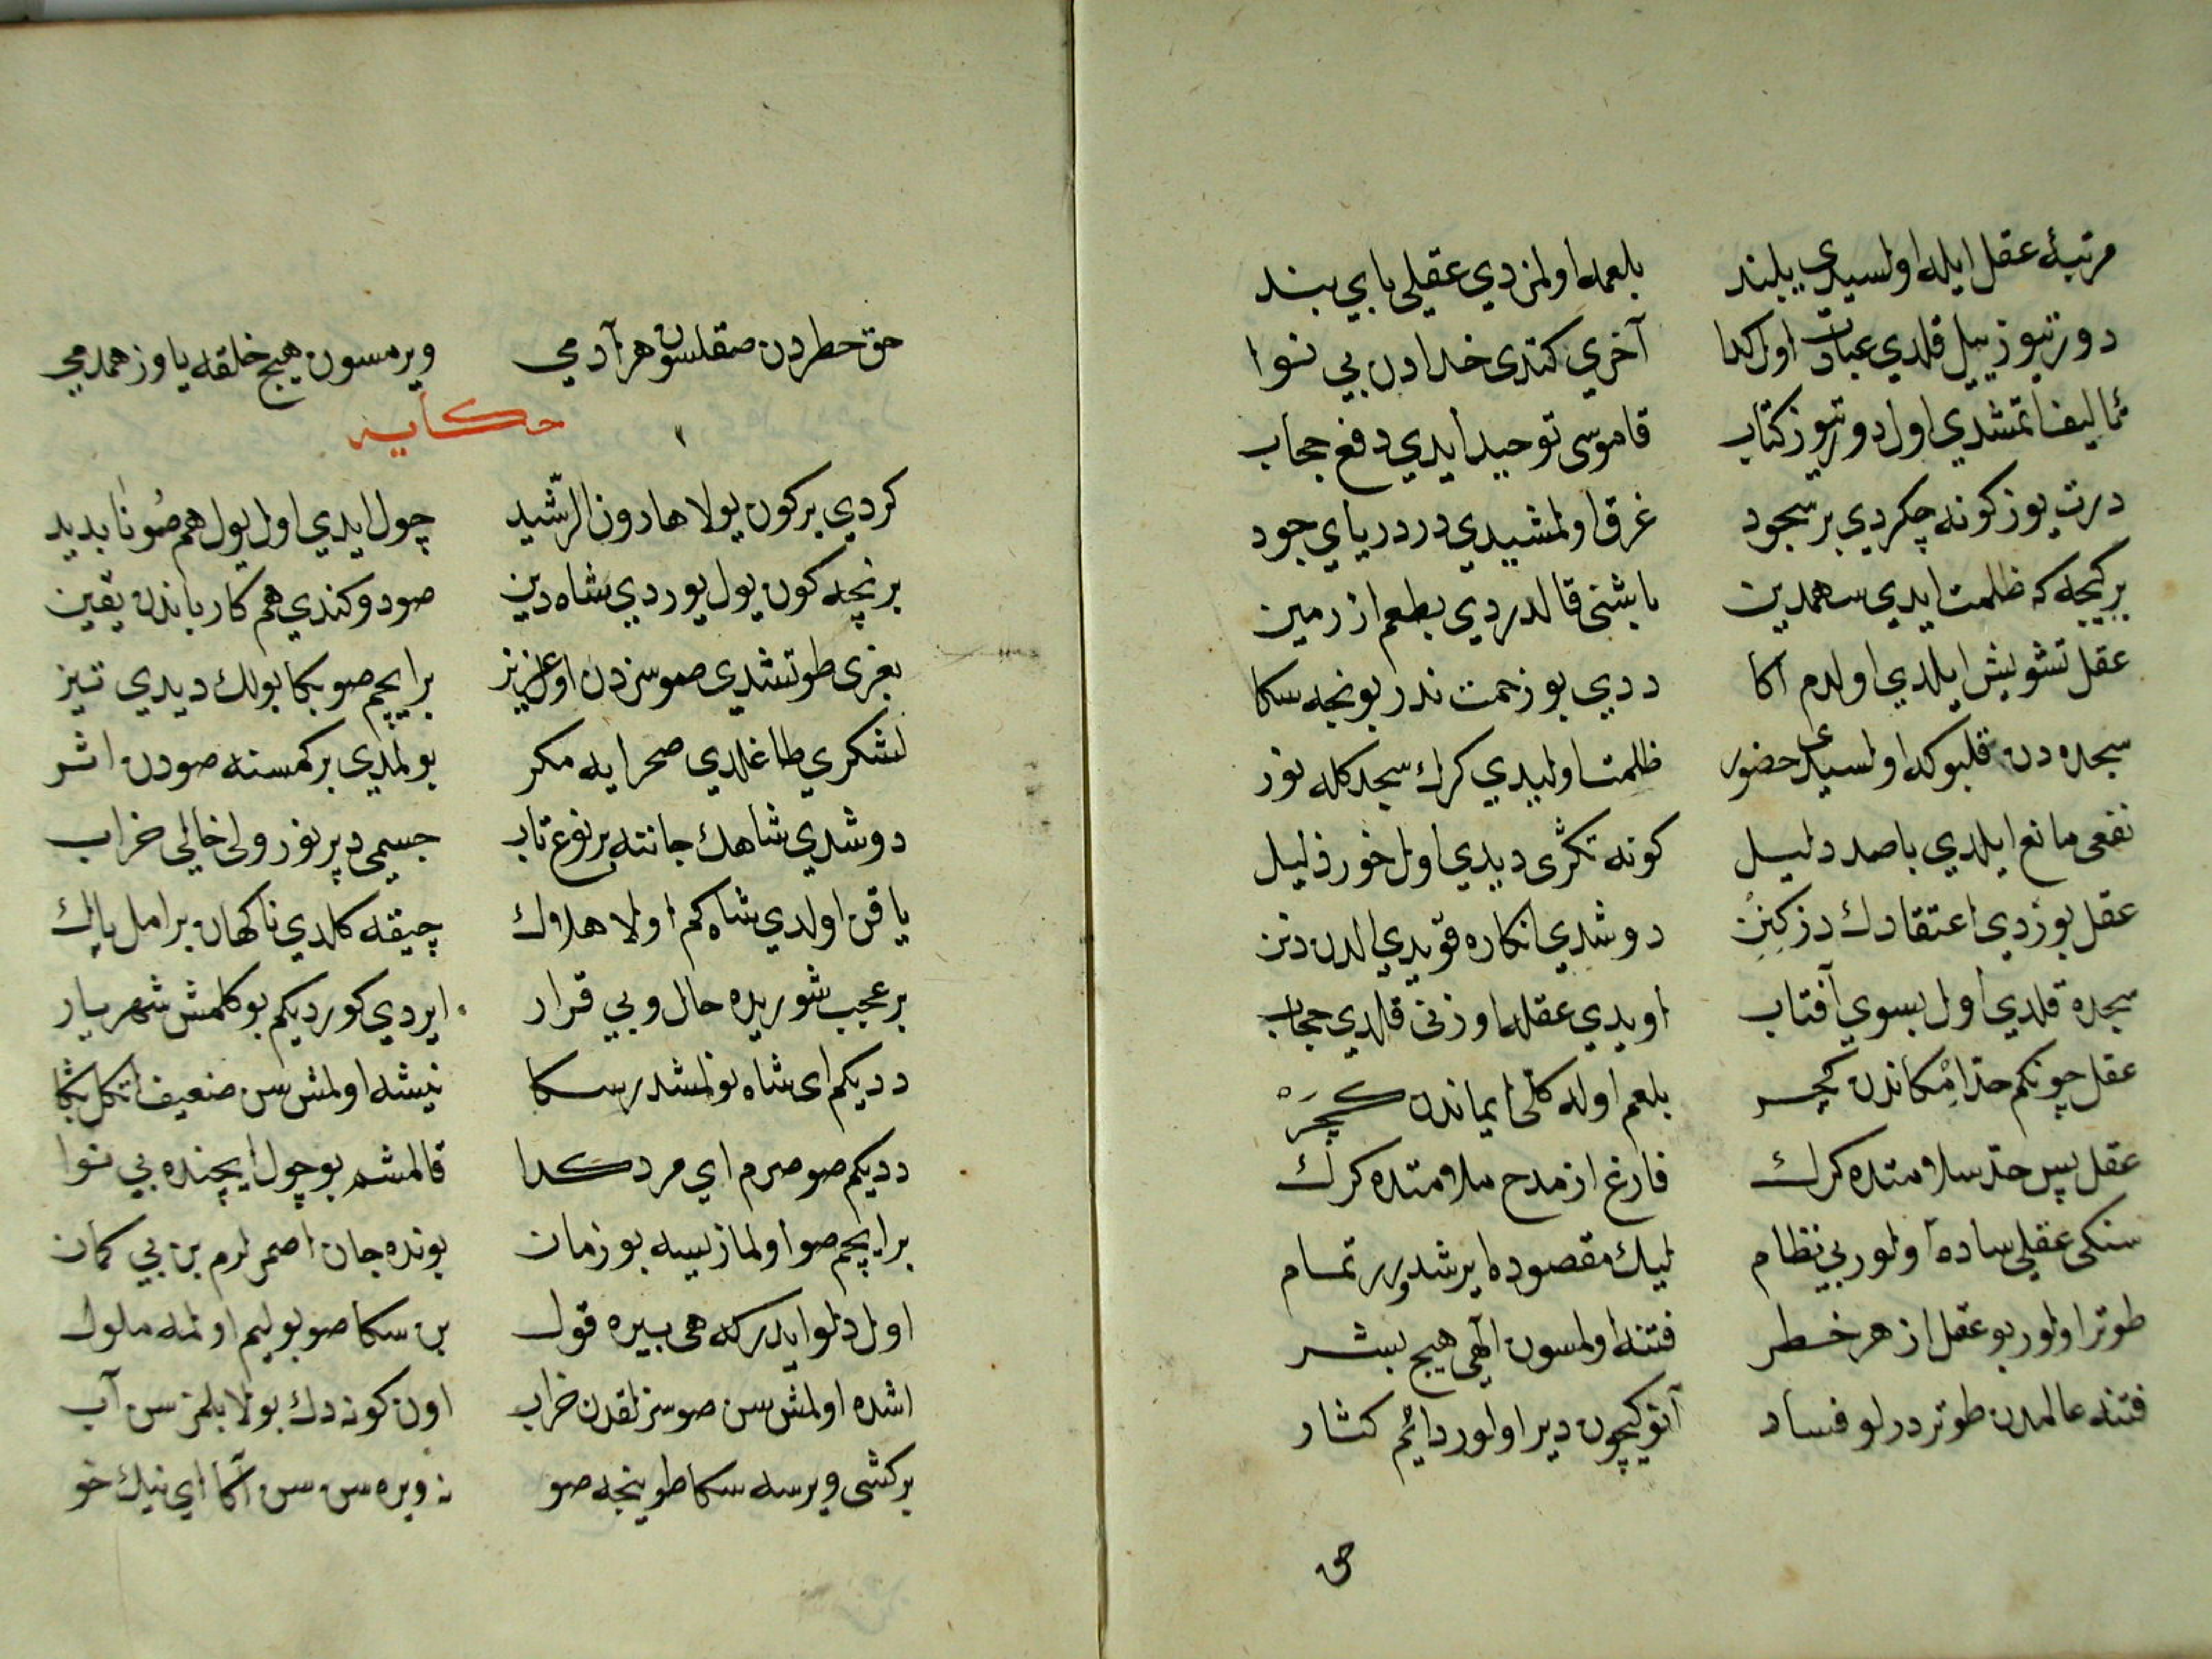 مرتبهٔ عقل ایله اولسیدی بلند بلعمه اولمزدي عقلی پاي بند
دورتیوز ییل قلدي عبادت اول کدا آخري کتدی خدادن بي نوا
تالیف اتمشدي اول دورتیوز کتاب قاموسی توحید ایدي دفع حجاب
درت یوز کونه چکردي بر سجود غرق اولمشیدي در دریاي جود
بر کیجه که ظلمت ایدي سهمدین باشنی قالدردي بلعم از زمین
عقل تشویش ایلدي اولدم اکا ددي بو زحمت ندر بونجه سکا
سجده دن قلبوکه اولسیدی حضور ظلمت اولیدي کرك سجدکله نور
نفعی مانع ایلدي باصد دلیل کونه تکری دیدي اول خور ذلیل
عقل بوزدی اعتقادك دوشدي انکاره قویدي الدن دین
سجده قلدي اول بسوي آفتاب اویدي عقله اوزنی قلدي حجاب
عقل چونکم حد امکاندن کچر بلعم اوله کلی ایماندن کچر
عقل پس حد سلامتده کرك فارغ از مدح ملامتده کرك
سنکی عقلی ساده اولور بي نظام لیك مقصوده ایرشدرر تمام
طوتر اولور بو عقل از هر خطر فتنه اولمسون الهی هیچ بشر
فتنه عالمدن طوتر درلو فساد آنوکیچون دیر اولور دائم کشاد
حق
حق خطردن صقلسون هر آدمي ویرمسون هیچ خلقه یاوز همدمي
حکایه
کردي بر کون یولا هارون الرّشید چول ایدي اول یول هم صو ناپدید
بر نچه کون یول یوردي شاه دین صو دوکندي هم کاربانـدن یقین
بغری طوتشدي صوسزدن او عزیز بر ایچم صو بکا بولك دیدي تیز
لشکري طاغلدي صحرایه مکر بولمدي بر کمسنه صودن اثر
دوشدي شاهك جاننه بر نوع تاب جسمی دپرنور ولی خالي خراب
یاقن اولدي شاه کم اولا هلاك چیقه کلدي ناکهان بر پاك
بر عجب شوریده حال و بي قرار ایردي کوردیکم بوکلمش شهریار
ددیکم ای شاه نولمشدر سکا نیشه اولمش سن ضعیف اتکل بکا
ددیکم صوصزم اي مرد کدا قالمشم بو چول ایچنده بي نوا
بر ایچم صو اولماز ییسه بو زمان بونده جان اصمرلرم بن بي کمان
اول دلو ایدر که هی بیره قول بن سکا صو بولیم اولمه ملول
اشده اولمش سن صوسزلقدن خراب اون کونه دك بولا بلمز سن آب
بر کشی ویرسه سکا طوینجه صو نه ویره سن سن اکا اي نیك خو